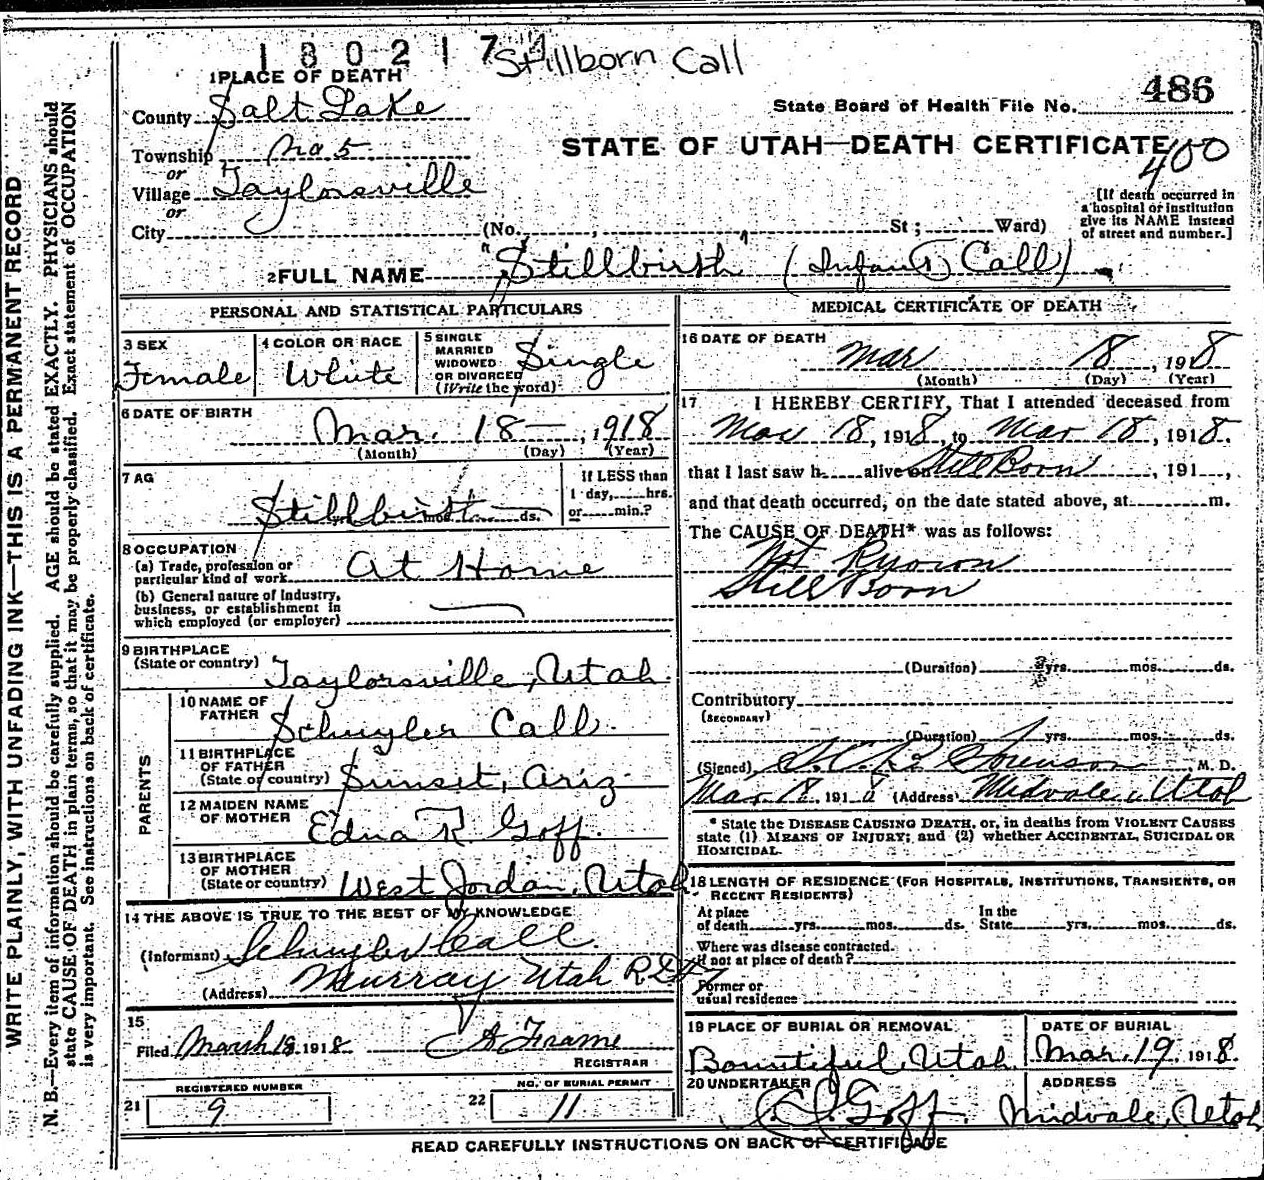 180217
Stillborn Call
1 PLACE OF DEATH
County Salt Lake
State Board of Health File No. 486
Township No 5
STATE OF UTAH—DEATH CERTIFICATE
400
or
Village Taylorsville
or
City (No. , St ; Ward)
[If death occurred in
a hospital or institution
give its NAME instead
of street and number.]
2 FULL NAME "Stillbirth" (Infant) Call)
PERSONAL AND STATISTICAL PARTICULARS
3 SEX
Female
4 COLOR OR RACE
White
5 SINGLE
MARRIED
WIDOWED
OR DIVORCED
(Write the word)
Single
6 DATE OF BIRTH
Mar. 18 — , 1918
(Month) (Day) (Year)
7 AG
Stillbirth mos. ds.
If LESS than
1 day, hrs.
or min.?
8 OCCUPATION
(a) Trade, profession or
particular kind of work At Home
(b) General nature of Industry,
business, or establishment in
which employed (or employer)
9 BIRTHPLACE
(State or country) Taylorsville, Utah
PARENTS
10 NAME OF
FATHER Schuyler Call
11 BIRTHPLACE
OF FATHER
(State or country) Sunset, Ariz.
12 MAIDEN NAME
OF MOTHER Edna R. Goff.
13 BIRTHPLACE
OF MOTHER
(State or country) West Jordan, Utah
14 THE ABOVE IS TRUE TO THE BEST OF MY KNOWLEDGE
(Informant) Schuyler Call
(Address) Murray Utah R D #7
15
Filed March 18 1918 A Frame
REGISTRAR
REGISTERED NUMBER
21 9
NO. OF BURIAL PERMIT
22 11
MEDICAL CERTIFICATE OF DEATH
16 DATE OF DEATH
Mar 18 , 1918
(Month) (Day) (Year)
17 I HEREBY CERTIFY, That I attended deceased from
Mar 18, 1918, to Mar 18, 1918.
that I last saw h alive on Still Born , 191 ,
and that death occurred, on the date stated above, at m.
The CAUSE OF DEATH* was as follows:
Not Known
Still Born
(Duration) yrs. mos. ds.
Contributory
(SECONDARY)
(Duration) yrs. mos. ds.
(Signed) Sorenson M. D.
Mar. 18, 1918 (Address) Midvale, Utah
* State the DISEASE CAUSING DEATH, or, in deaths from VIOLENT CAUSES
state (1) MEANS OF INJURY; and (2) whether ACCIDENTAL, SUICIDAL OR
HOMICIDAL.
18 LENGTH OF RESIDENCE (FOR HOSPITALS, INSTITUTIONS, TRANSIENTS, OR
RECENT RESIDENTS)
At place In the
of death yrs. mos. ds. State yrs. mos. ds.
Where was disease contracted.
if not at place of death?
Former or
usual residence
19 PLACE OF BURIAL OR REMOVAL
Bountiful, Utah
DATE OF BURIAL
Mar. 19, 1918.
20 UNDERTAKER
Goff
ADDRESS
Midvale, Utah
READ CAREFULLY INSTRUCTIONS ON BACK OF CERTIFICATE
WRITE PLAINLY, WITH UNFADING INK—THIS IS A PERMANENT RECORD
N. B.—Every item of information should be carefully supplied. AGE should be stated EXACTLY. PHYSICIANS should
state CAUSE OF DEATH in plain terms, so that it may be properly classified. Exact statement of OCCUPATION
is very important. See instructions on back of certificate.